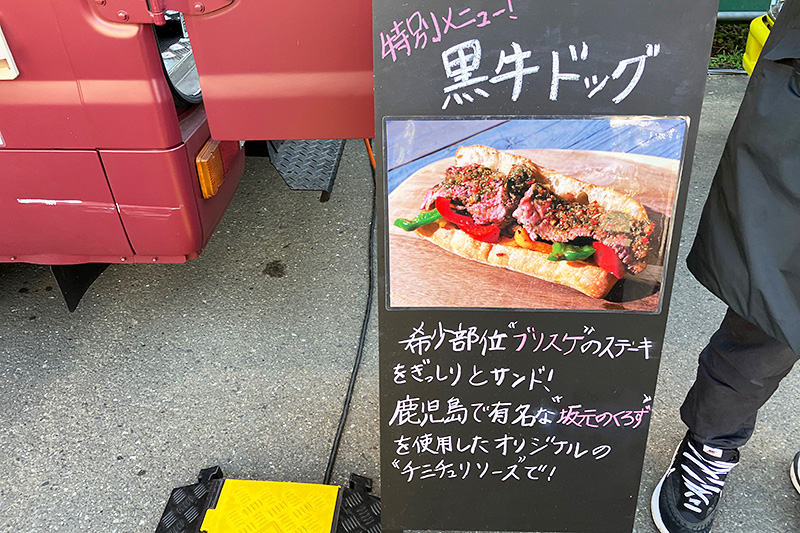 特別メニュー!
黒牛ドッグ
希少部位"ブリスケ"のステーキ
をぎっしりとサンド!
鹿児島で有名な"坂元のくろず"
を使用したオリジナルの
"チミチュリソース"で!